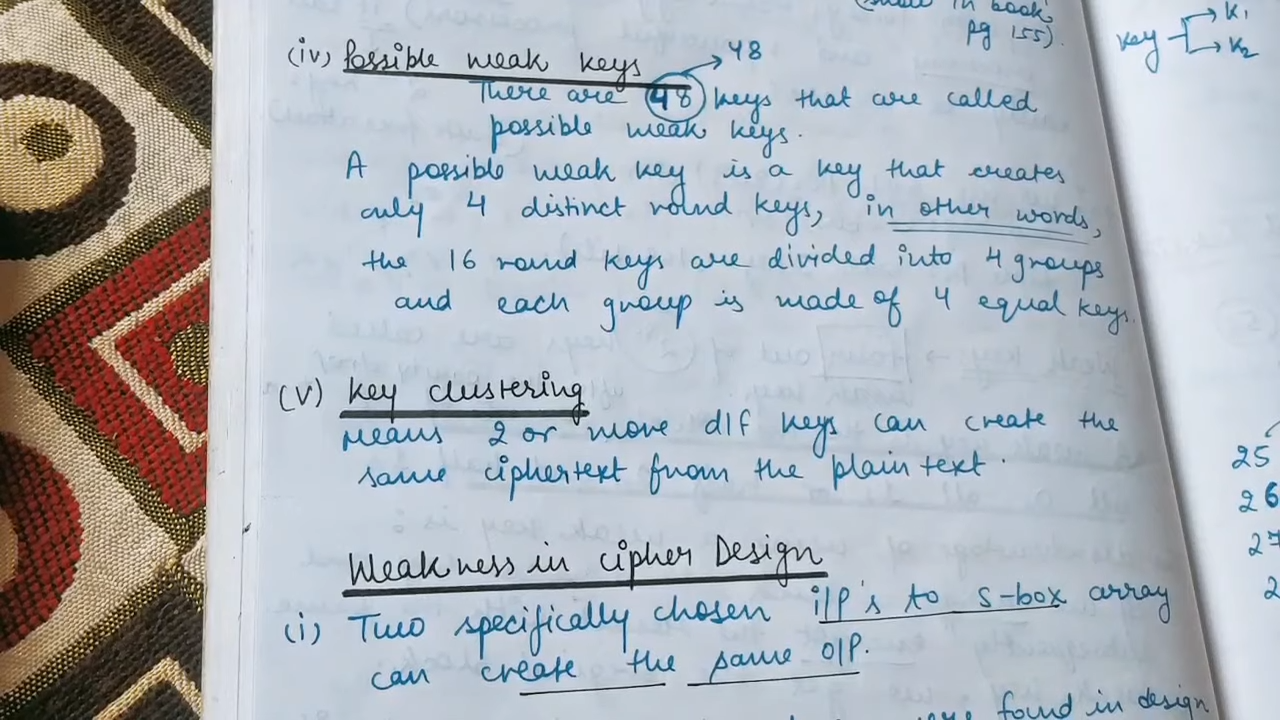 in book
pg 155).
key → K1
→ K2
(iv) Possible weak keys
→ 48
There are 48 keys that are called
possible weak keys.
A possible weak key is a key that creates
only 4 distinct round keys, in other words,
the 16 round keys are divided into 4 groups
and each group is made of 4 equal keys.
(v) Key clustering
means 2 or more dIf keys can create the
same ciphertext from the plain text.
Weakness in Cipher Design
(i) Two specifically chosen i/P's to S-box array
can create the same O/P.
found in design
25
26
27
2